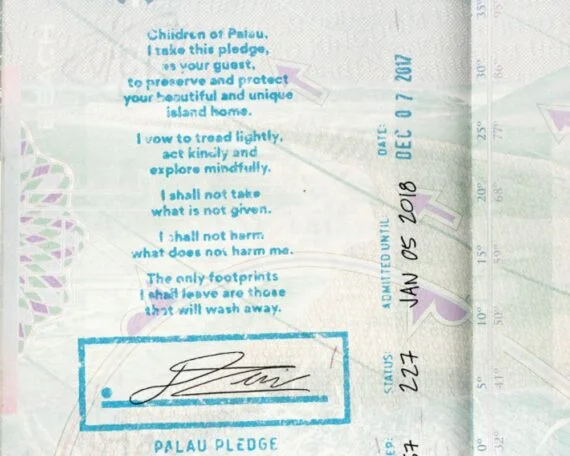 Children of Palau,
I take this pledge,
as your guest,
to preserve and protect
your beautiful and unique
island home.
I vow to tread lightly,
act kindly and
explore mindfully.
I shall not take
what is not given.
I shall not harm
what does not harm me.
The only footprints
I shall leave are those
that will wash away.
PALAU PLEDGE
DATE:
DEC 07 2017
ADMITTED UNTIL
JAN 05 2018
STATUS:
227
35°
30°
25°
20°
15°
10°
5°
0°
95°
86°
77°
68°
59°
50°
41°
32°